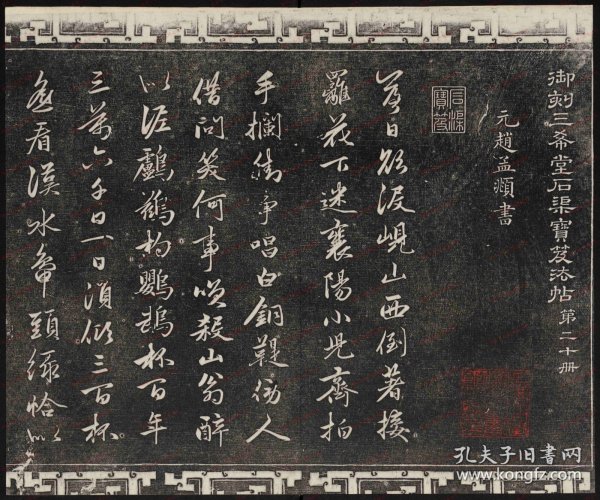 御刻三希堂石渠寶笈法帖 第二十冊
元趙孟頫書
石渠寶笈
落日欲沒峴山西倒著接
䍦花下迷襄陽小兒齊拍
手攔街爭唱白銅鞮傍人
借問笑何事笑殺山翁醉
似泥鸕鶿杓鸚鵡杯百年
三萬六千日一日須傾三百杯
遙看漢水鴨頭綠恰似
孔夫子旧书网
www.kongfz.com